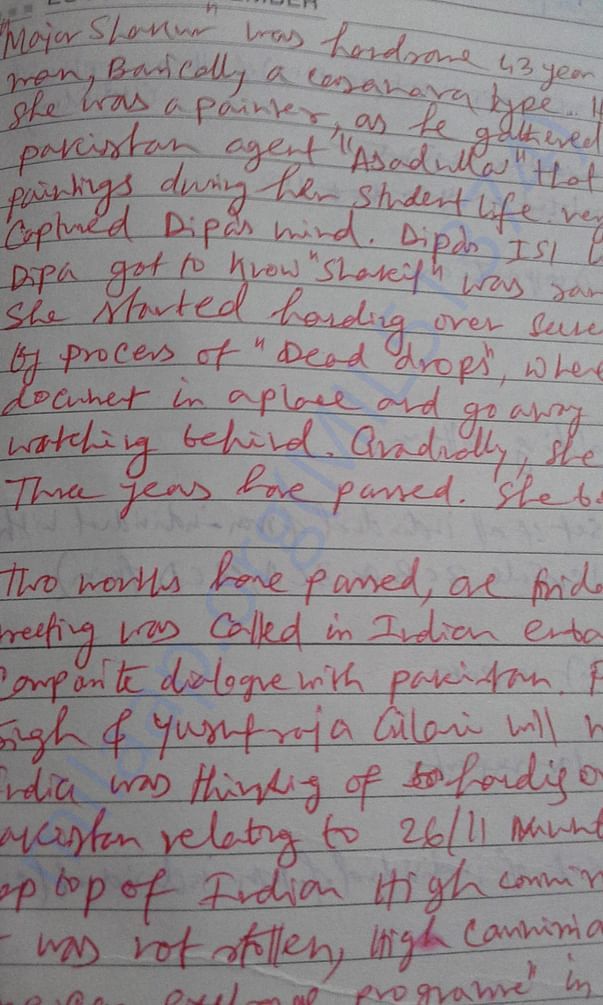 "Major Shakur" was handsome 43 year
man, Basically a casanava type..
She was a painter, as he gathered
pakistan agent "Asadulla" that
paintings during her student life. ver
Captured Dipa's mind. Dipa's ISI
Dipa got to know "Shakir" was
She started handing over
By process of "Dead drops", where
documet in a place and go away
watching behind. Gradually, she
Three years have passed. She b
Two months have passed, one
meeting was called in Indian emba
Composite dialogue with pakistan.
Singh & Yusuf raja Gilani will
India was thinking of handig o
akistan relatig to 26/11 mum
ap top of Indian High comm
was not stollen, High Commi
programe" in